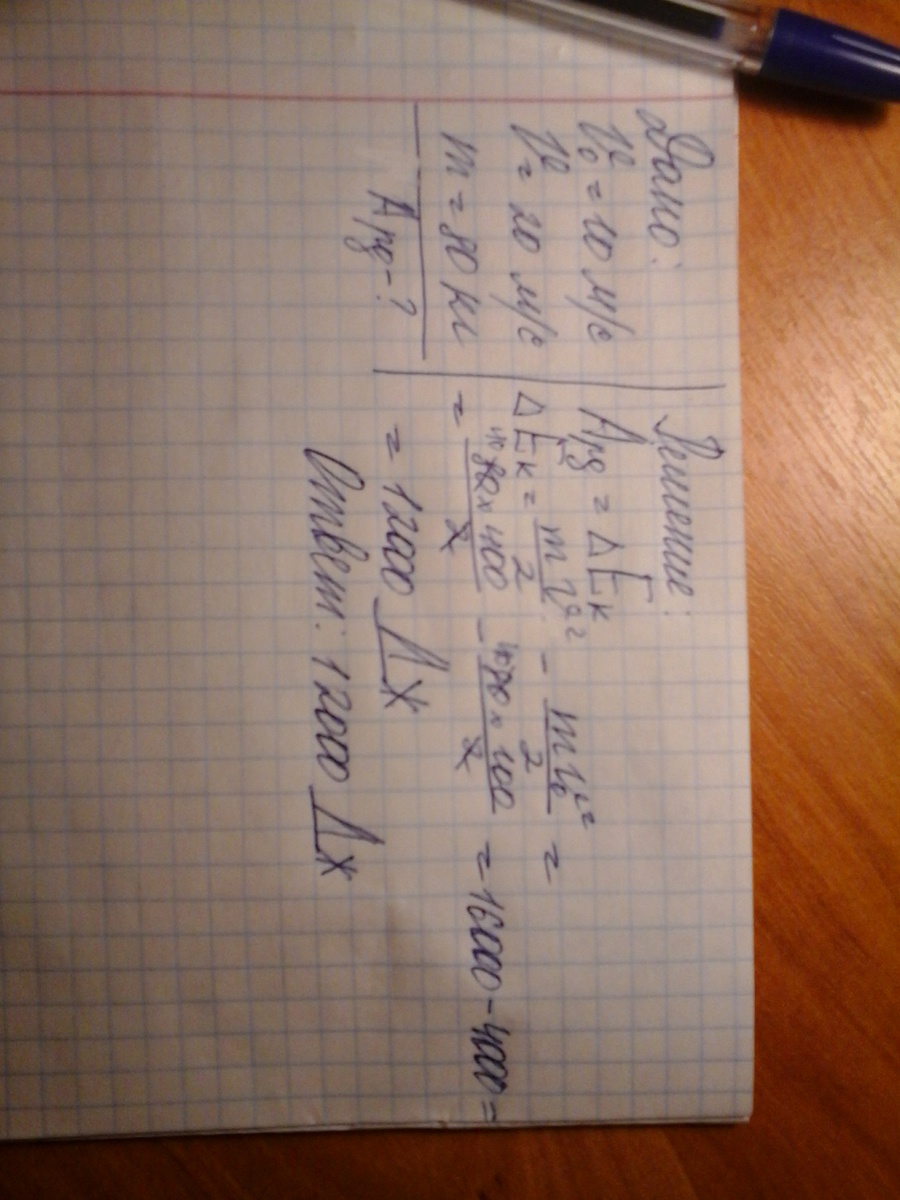 Дано:
V₀ = 10 м/с
V = 20 м/с
m = 80 кг
Aрд - ?
Решение:
Aрд = ΔEк
ΔEк = mV²/2 - mV₀²/2 =
= 80×400/2 - 80×100/2 = 16000 - 4000 =
= 12000 Дж
Ответ: 12000 Дж